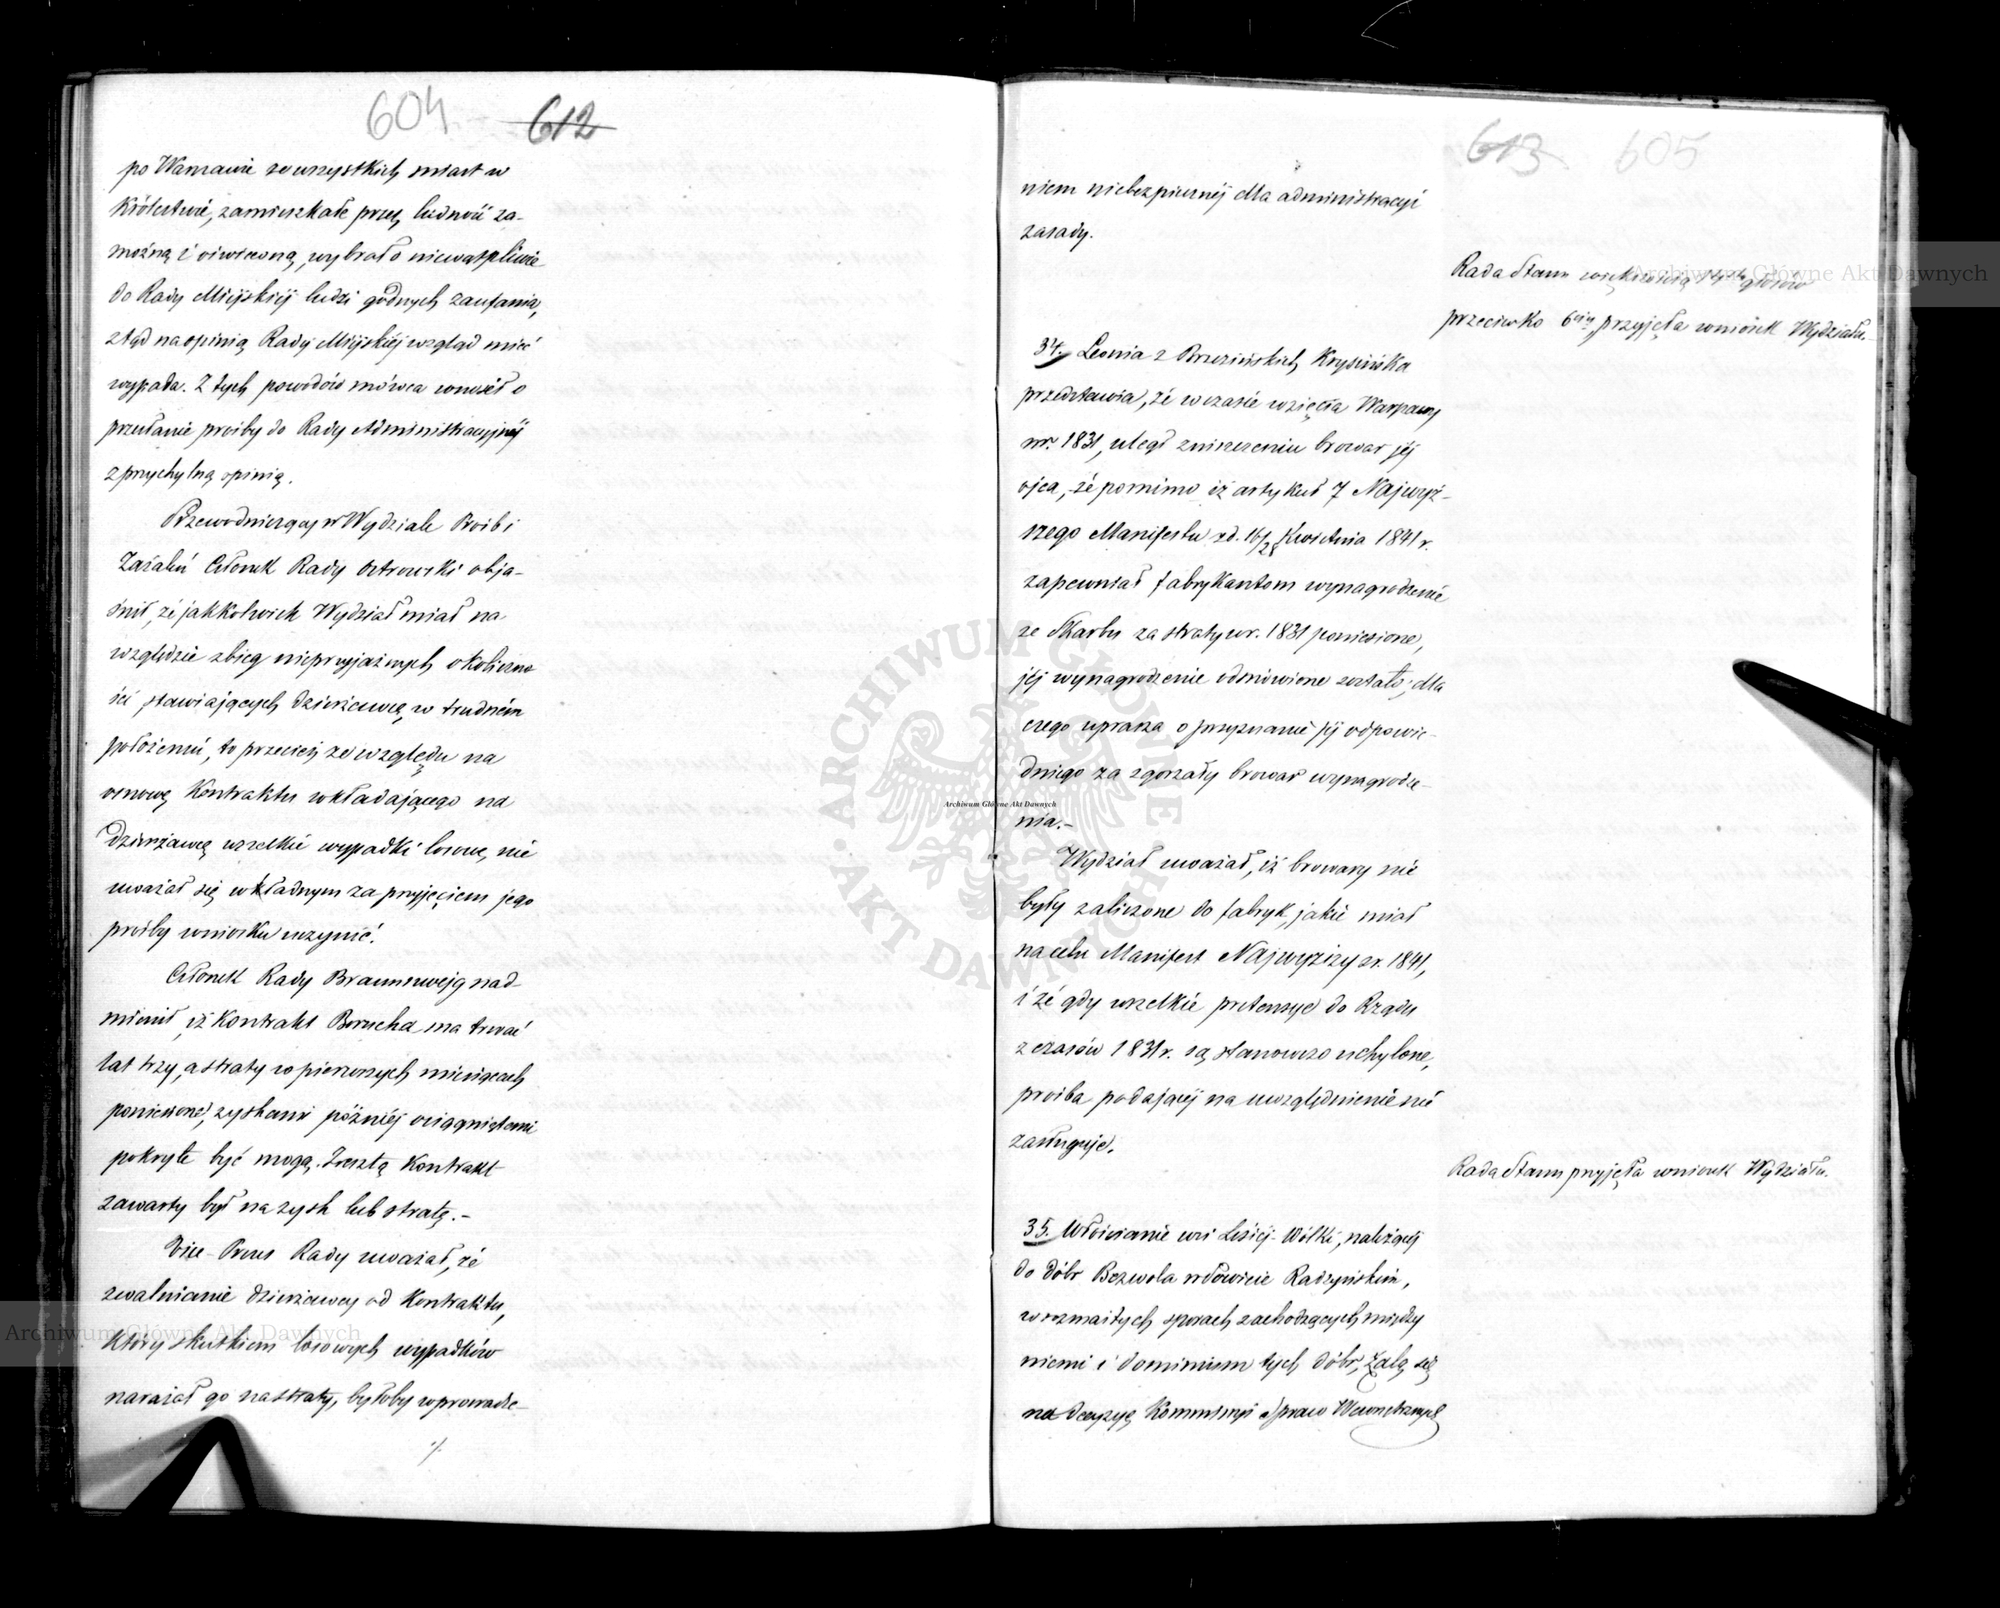 604 612
po Warszawie ze wszystkich miast w
Królestwie, zamieszkałe przez ludność za-
możną i oświeconą, wybrało niewątpliwie
do Rady Miejskiej ludzi godnych zaufania,
ztąd na opinią Rady Miejskiej wzgląd mieć
wypada. Z tych powodów mówca wnosił o
przesłanie prośby do Rady Administracyjnej
z przychylną opinią.
Przewodniczący w Wydziale Prośb i
Zażaleń Członek Rady Ostrowski obja-
śnił, że jakkolwiek Wydział miał na
względzie zbieg nieprzyjaznych okoliczno
ści stawiających dzierżawcę w trudném
położeniu, to przecież ze względu na
osnowę Kontraktu wkładającego na
dzierżawcę wszelkie wypadki losowe, nie
uważał się władnym za przyjęciem jego
prośby wniosku uczynić.
Członek Rady Braunszwejg nad-
mienił, iż Kontrakt Borucha ma trwać
lat trzy, a straty w pierwszych miesiącach
poniesione, zyskami później osiągniętemi
pokryte być mogą. Zresztą Kontrakt
zawarty był na zysk lub stratę.-
Vice-Prezes Rady uważał, że
zwalnianie dzierżawcy od Kontraktu,
który skutkiem losowych wypadków
narażał go na straty, byłoby wprowadze-
·/.
613 605
niem niebezpiecznéj dla administracyi
zasady.
Rada Stanu większością głosów
przeciwko 6ciu przyjęła wniosek Wydziału.
34. Leonia z Brzezińskich Krysińska
przedstawia, że w czasie wzięcia Warszawy
w r. 1831, uległ zniszczeniu browar jéj
ojca, że pomimo iż artykuł 7 Najwyż-
szego Manifestu z d. 16/28 Kwietnia 1841 r.
zapewniał fabrykantom wynagrodzenie
ze Skarbu za straty w r. 1831 poniesione,
jéj wynagrodzenie odmówione zostało; dla
czego uprasza o przyznanie jéj odpowie-
dniego za zgorzały browar wynagrodze-
nia.-
Wydział uważał, iż browary nie
były zaliczone do fabryk, jakie miał
na celu Manifest Najwyższy z r. 1841,
i że gdy wszelkie pretensye do Rządu
z czasów 1831 r. są stanowczo uchylone,
prośba podającéj na uwzględnienie nie
zasługuje.
Rada Stanu przyjęła wniosek Wydziału.
35. Włościanie wsi Leśiéj-Wólki, należącéj
do dóbr Bezwola w Powiecie Radzyńskim,
w rozmaitych sporach zachodzących między
niemi i dominium tych dóbr, żalą się
na decyzyę Kommissyi Spraw Wewnętrznych
Archiwum Główne Akt Dawnych
Archiwum Główne Akt Dawnych
Archiwum Główne Akt Dawnych
ARCHIWUM GŁÓWNE AKT DAWNYCH